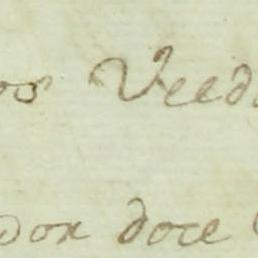 os Veed
dor doce